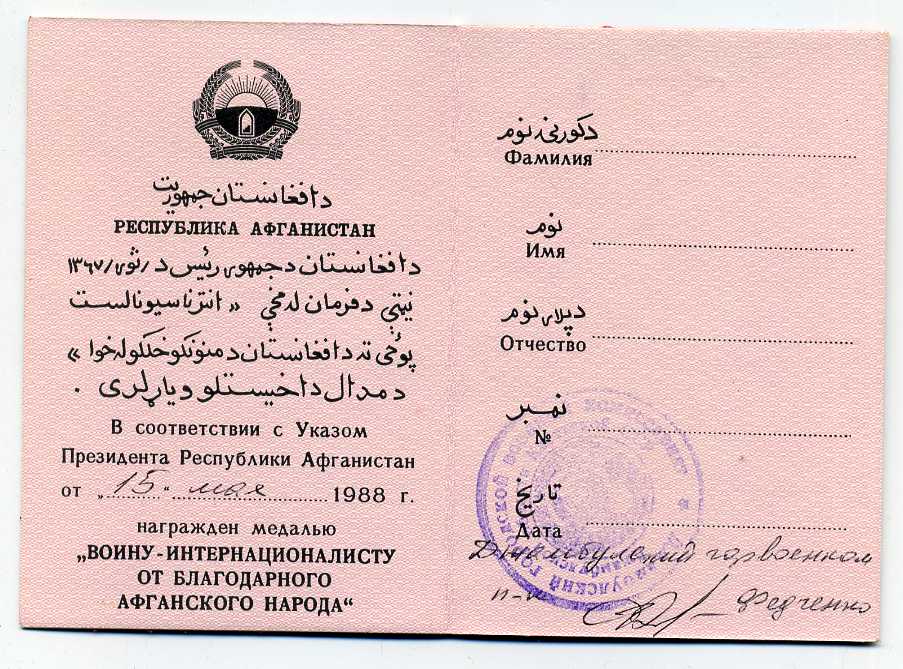 د افغانستان جمهوریت
РЕСПУБЛИКА АФГАНИСТАН
د افغانستان د جمهوری رئیس د / ثوی / ۱۳۶۷
نیټې د فرمان له مخې « انترناسیونالست
پوځی ته د افغانستان د منونکو خلکو له خوا »
د مدال د اخیستلو ویاړ لری .
В соответствии с Указом
Президента Республики Афганистан
от „15“ мая 1988 г.
награжден медалью
„ВОИНУ-ИНТЕРНАЦИОНАЛИСТУ
ОТ БЛАГОДАРНОГО
АФГАНСКОГО НАРОДА“
د کورنۍ نوم
Фамилия
نوم
Имя
د پلار نوم
Отчество
نمبر
№
تاریخ
Дата
горвоенком
п-п
Федченко